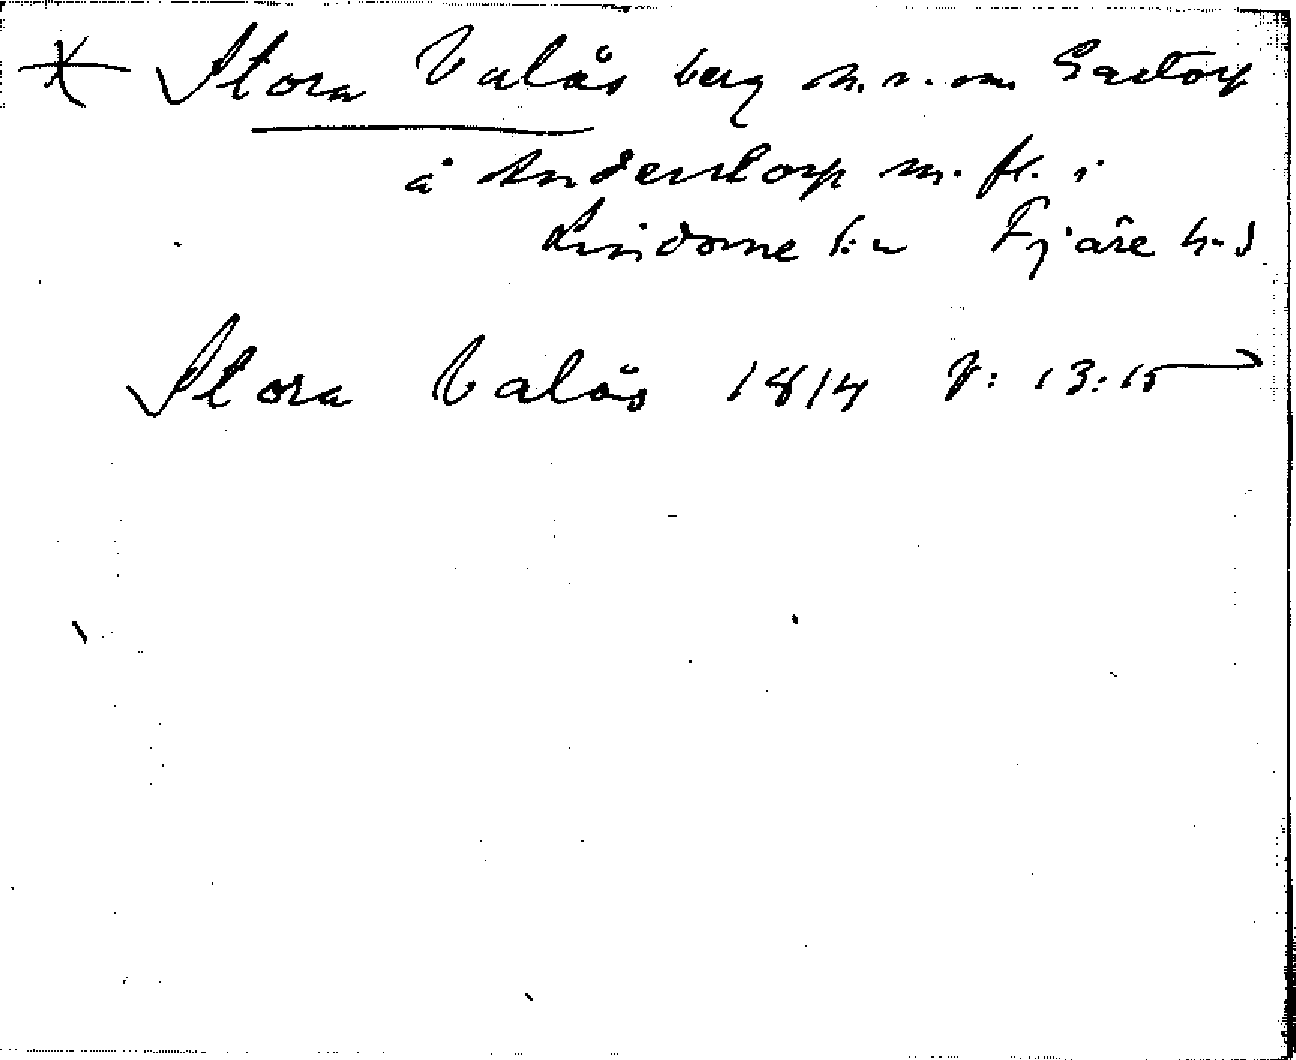 * Stora Valås berg n. n. om Gastorp
å Anderstorp m. fl. i
Lindome s:n Fjäre h-d
Stora Valås 1814 J: 13:15